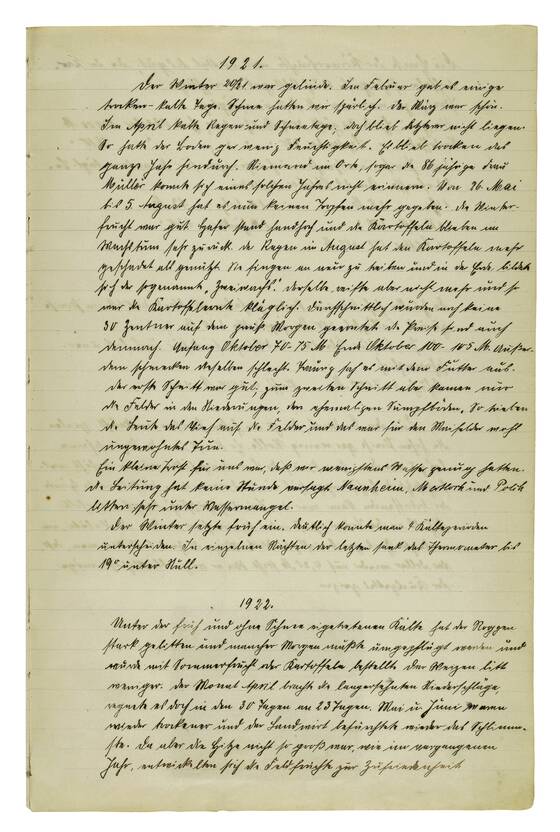 1921.
Der Winter 20/21 war gelinde. Im Februar gab es einige
trocken-kalte Tage. Schnee hatten wir spärlich. Der März war schön.
Im April kalte Regen- und Schneetage, doch blieb letzterer nicht liegen.
So hatte der Boden gar wenig Feuchtigkeit. Es blieb trocken das
ganze Jahr hindurch. Niemand im Orte, sogar die 86 jährige Frau
Müller konnte sich eines solchen Jahres nicht erinnern. Von 26. Mai
bis 5. August hat es nun keinen Tropfen mehr gegeben. Die Winter-
frucht war gut. Hafer stand handhoch und die Kartoffeln blieben im
Wachstum sehr zurück. Der Regen im August hat den Kartoffeln mehr
geschadet als genützt. Sie fingen an neu zu keimen und in der Erde bildete
sich der sogenannte "Zwiewachs". Derselbe reifte aber nicht mehr und so
war die Kartoffelernte kläglich. Durchschnittlich wurden noch keine
30 Zentner auf dem Morgen geerntet. Die Preise sind auch
demnach. Anfang Oktober 70-75 M. Ende Oktober 100-105 M. Außer-
dem schmecken dieselben schlecht. Traurig sah es mit dem Futter aus.
Der erste Schnitt war gut, zum zweiten Schnitt aber kamen nur
die Felder in den Niederungen, den ehemaligen Sumpfböden. So trieben
die Leute das Vieh auf die Felder und das war für den wohl
ungewohntes Tun.
Ein kleiner Trost für uns war, daß wir wenigstens Wasser genug hatten.
Die Leitung hat keine Stunde versagt. Mannheim, und
litten sehr unter Wassermangel.
Der Winter setzte früh ein. Deutlich konnte man 4 Kälteperioden
unterscheiden. In einzelnen Nächten der letzten sank das Thermometer bis
19° unter Null.
1922.
Unter der früh und ohne Schnee eingetretenen Kälte hat der Roggen
stark gelitten und mancher Morgen mußte umgepflügt werden und
wurde mit Sommerfrucht oder Kartoffeln bestellt. Der Weizen litt
weniger. Der Monat April brachte die langersehnten Niederschläge,
regnete es doch in den 30 Tagen an 23 Tagen. Mai u. Juni waren
wieder trockener und der Landwirt befürchtete wieder das Schlimm-
ste. Da aber die Hitze nicht so groß war, wie im vergangenen
Jahr, entwickelten sich die Feldfrüchte zur Zufriedenheit